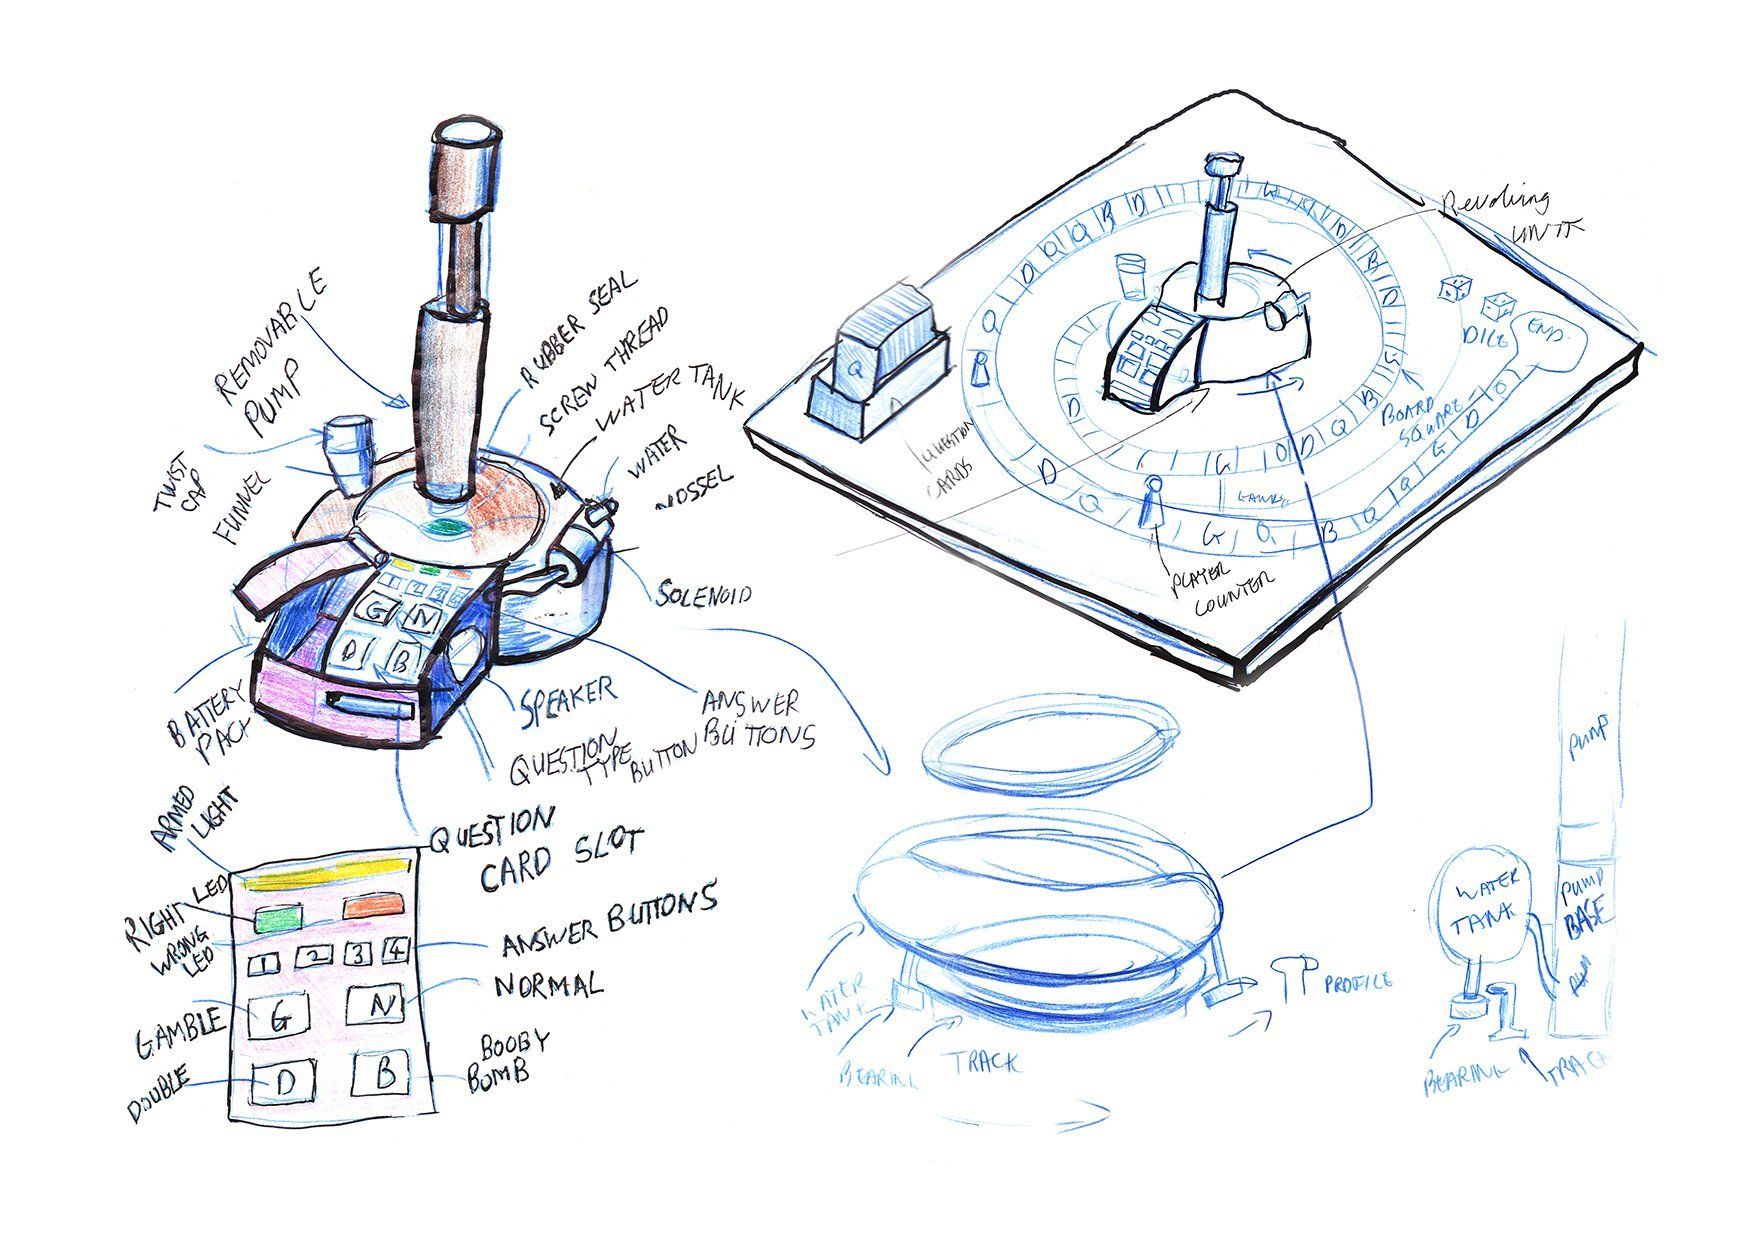 REMOVABLE
PUMP
RUBBER SEAL
SCREW THREAD
WATER TANK
WATER
NOSSEL
TWIST
CAP
FUNNEL
SOLENOID
1 2 3 4
G N
D B
BATTERY
PACK
SPEAKER
ANSWER
BUTTONS
QUESTION
TYPE BUTTON
QUESTION
CARD SLOT
ARMED
LIGHT
RIGHT LED
WRONG
LED
1 2 3 4
ANSWER BUTTONS
GAMBLE
G N
NORMAL
DOUBLE
D B
BOOBY
BOMB
Revolving
UNIT
DICE
END
BOARD
SQUARE
Q
CARDS
PLAYER
COUNTER
D Q Q Q B D
D Q G Q B Q Q G D O
WATER
TANK
BEARING
TRACK
PROFILE
PUMP
WATER
TANK
PUMP
BASE
BEARING
TRACK